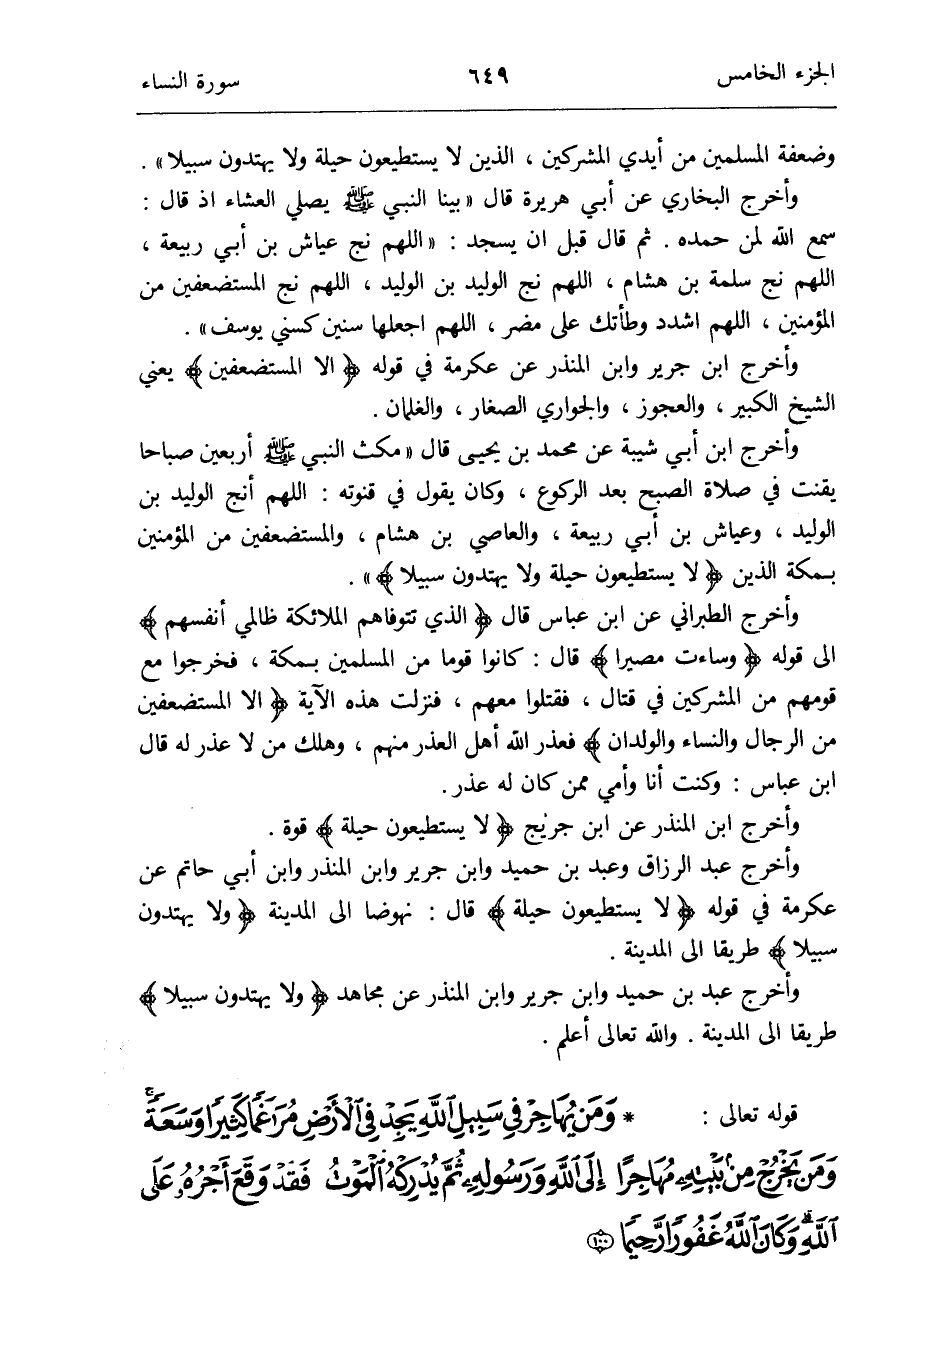 الجزء الخامس ٦٤٩ سورة النساء
وضعفة المسلمين من أيدي المشركين ، الذين لا يستطيعون حيلة ولا يهتدون سبيلا» .
وأخرج البخاري عن أبي هريرة قال «بينا النبي ﷺ يصلي العشاء اذ قال :
سمع الله لمن حمده . ثم قال قبل ان يسجد : «اللهم نج عياش بن أبي ربيعة ،
اللهم نج سلمة بن هشام ، اللهم نج الوليد بن الوليد ، اللهم نج المستضعفين من
المؤمنين ، اللهم اشدد وطأتك على مضر ، اللهم اجعلها سنين كسني يوسف» .
وأخرج ابن جرير وابن المنذر عن عكرمة في قوله ﴿ الا المستضعفين ﴾ يعني
الشيخ الكبير ، والعجوز ، والجواري الصغار ، والغلمان .
وأخرج ابن أبي شيبة عن محمد بن يحيى قال «مكث النبي ﷺ أربعين صباحا
يقنت في صلاة الصبح بعد الركوع ، وكان يقول في قنوته : اللهم أنج الوليد بن
الوليد ، وعياش بن أبي ربيعة ، والعاصي بن هشام ، والمستضعفين من المؤمنين
بمكة الذين ﴿ لا يستطيعون حيلة ولا يهتدون سبيلا ﴾» .
وأخرج الطبراني عن ابن عباس قال ﴿ الذي تتوفاهم الملائكة ظالمي أنفسهم ﴾
الى قوله ﴿ وساءت مصيرا ﴾ قال : كانوا قوما من المسلمين بمكة ، فخرجوا مع
قومهم من المشركين في قتال ، فقتلوا معهم ، فنزلت هذه الآية ﴿ الا المستضعفين
من الرجال والنساء والولدان ﴾ فعذر الله أهل العذر منهم ، وهلك من لا عذر له قال
ابن عباس : وكنت أنا وأمي ممن كان له عذر .
وأخرج ابن المنذر عن ابن جريج ﴿ لا يستطيعون حيلة ﴾ قوة .
وأخرج عبد الرزاق وعبد بن حميد وابن جرير وابن المنذر وابن أبي حاتم عن
عكرمة في قوله ﴿ لا يستطيعون حيلة ﴾ قال : نهوضا الى المدينة ﴿ ولا يهتدون
سبيلا ﴾ طريقا الى المدينة .
وأخرج عبد بن حميد وابن جرير وابن المنذر عن مجاهد ﴿ ولا يهتدون سبيلا ﴾
طريقا الى المدينة . والله تعالى أعلم .
قوله تعالى : * وَمَن يُهَاجِرْ فِي سَبِيلِ ٱللَّهِ يَجِدْ فِي ٱلْأَرْضِ مُرَٰغَمًا كَثِيرًا وَسَعَةً ۚ
وَمَن يَخْرُجْ مِنۢ بَيْتِهِۦ مُهَاجِرًا إِلَى ٱللَّهِ وَرَسُولِهِۦ ثُمَّ يُدْرِكْهُ ٱلْمَوْتُ فَقَدْ وَقَعَ أَجْرُهُۥ عَلَى
ٱللَّهِ ۗ وَكَانَ ٱللَّهُ غَفُورًا رَّحِيمًا ١٠٠